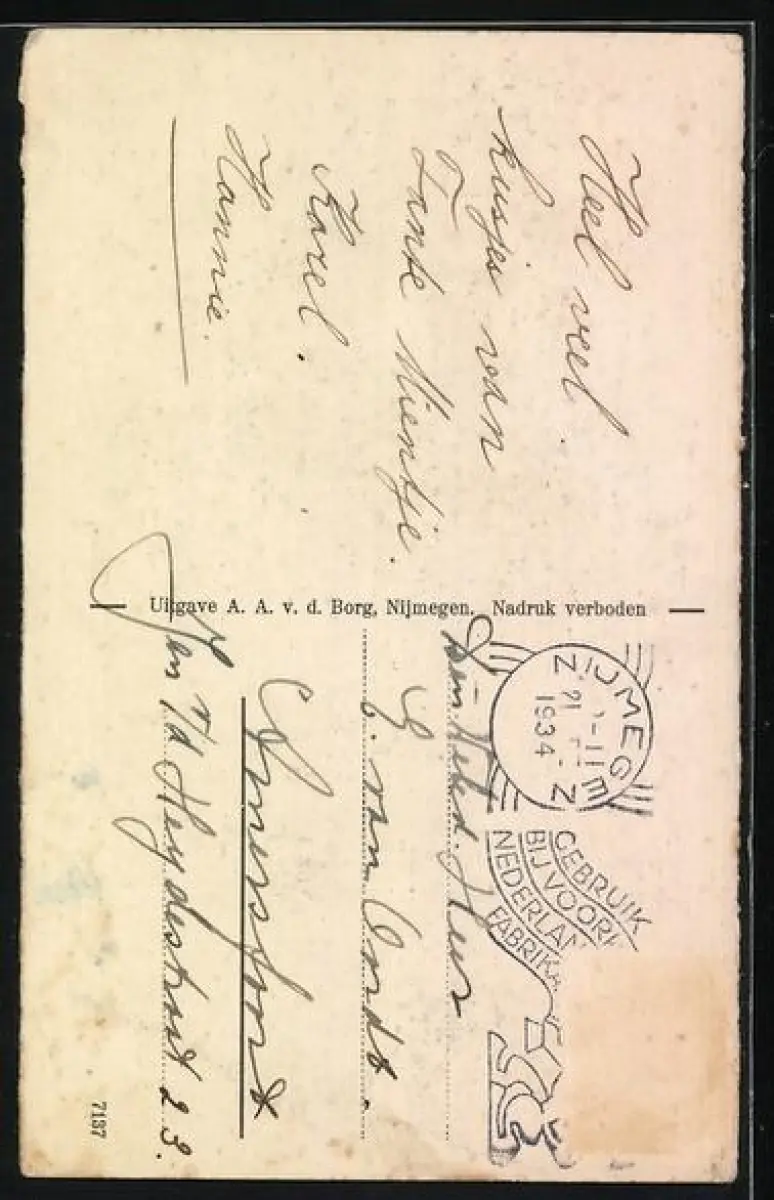 Heel veel
kusjes van
Tante Mientje.
Karel.
Hannie.
Uitgave A. A. v. d. Borg, Nijmegen. Nadruk verboden
NIJMEGEN
1934
GEBRUIK
BIJ VOORK
NEDERLAN
FABRIKA
Den Heer
G. van Ordt.
Amersfoort
Jan v/d Heydestraat 23.
7137